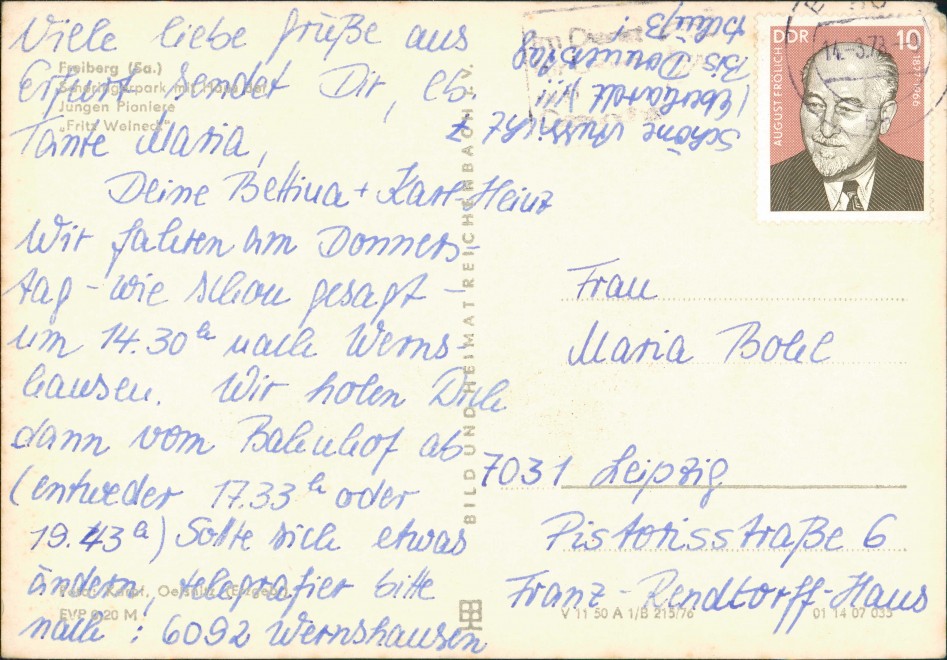 Viele liebe Grüße aus
Erfurt sendet Dir, lb.
Tante Maria,
Deine Bettina + Karl-Heinz
Wir fahren am Donners-
tag - wie schon gesagt -
um 14.30 h nach Werns-
hausen. Wir holen Dich
dann vom Bahnhof ab
(entweder 17.33 h oder
19.43 h) Sollte sich etwas
ändern, telegrafier bitte
nach: 6092 Wernshausen
Schöne Aussicht 7
(Eberhardt
Bis Donnerstag
tschüß!
Freiberg (Sa.)
Scheringerpark mit Haus der
Jungen Pioniere
„Fritz Weineck"
Foto: Karpf, Oelsnitz (Erzgeb.)
EVP 0,20 M
BILD UND HEIMAT REICHENBACH i. V.
DDR 10
AUGUST FRÖLICH
1877-1966
14.-3.78
Frau
Maria Bohl
7031 Leipzig
Pistorisstraße 6
Franz-Rendtorff-Haus
V 11 50 A 1/B 215/76 01 14 07 035